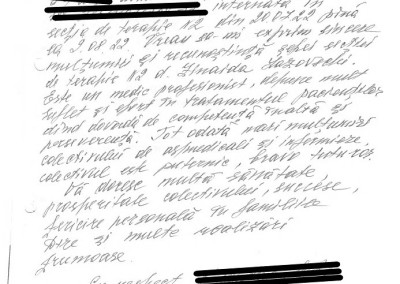 internată în
secția de terapie N2 din 20.07.22 pînă
la 2.08.22. Vreau să-mi exprim sincere
mulțumiri și recunoștință șefei secției
de terapie N2 d. Zinaida
Este un medic profesionist, depune mult
suflet și efort în tratamentul pacienților
dînd dovadă de competență înaltă și
perseverență. Tot odată mari mulțumiri
colectivului de asmedicali și infirmiere,
colectivul este puternic, bravo tuturor.
Vă doresc multă sănătate,
prosperitate colectivului, succese,
fericire personală în familiile
D-tre și multe realizări
frumoase.
Cu respect